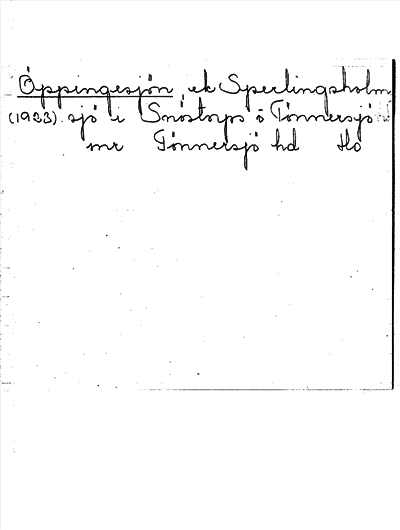 Öppingesjön, ek Sperlingsholm
(1933). sjö i Snöstorps o Tönnersjö
mr Tönnersjö hd Ho